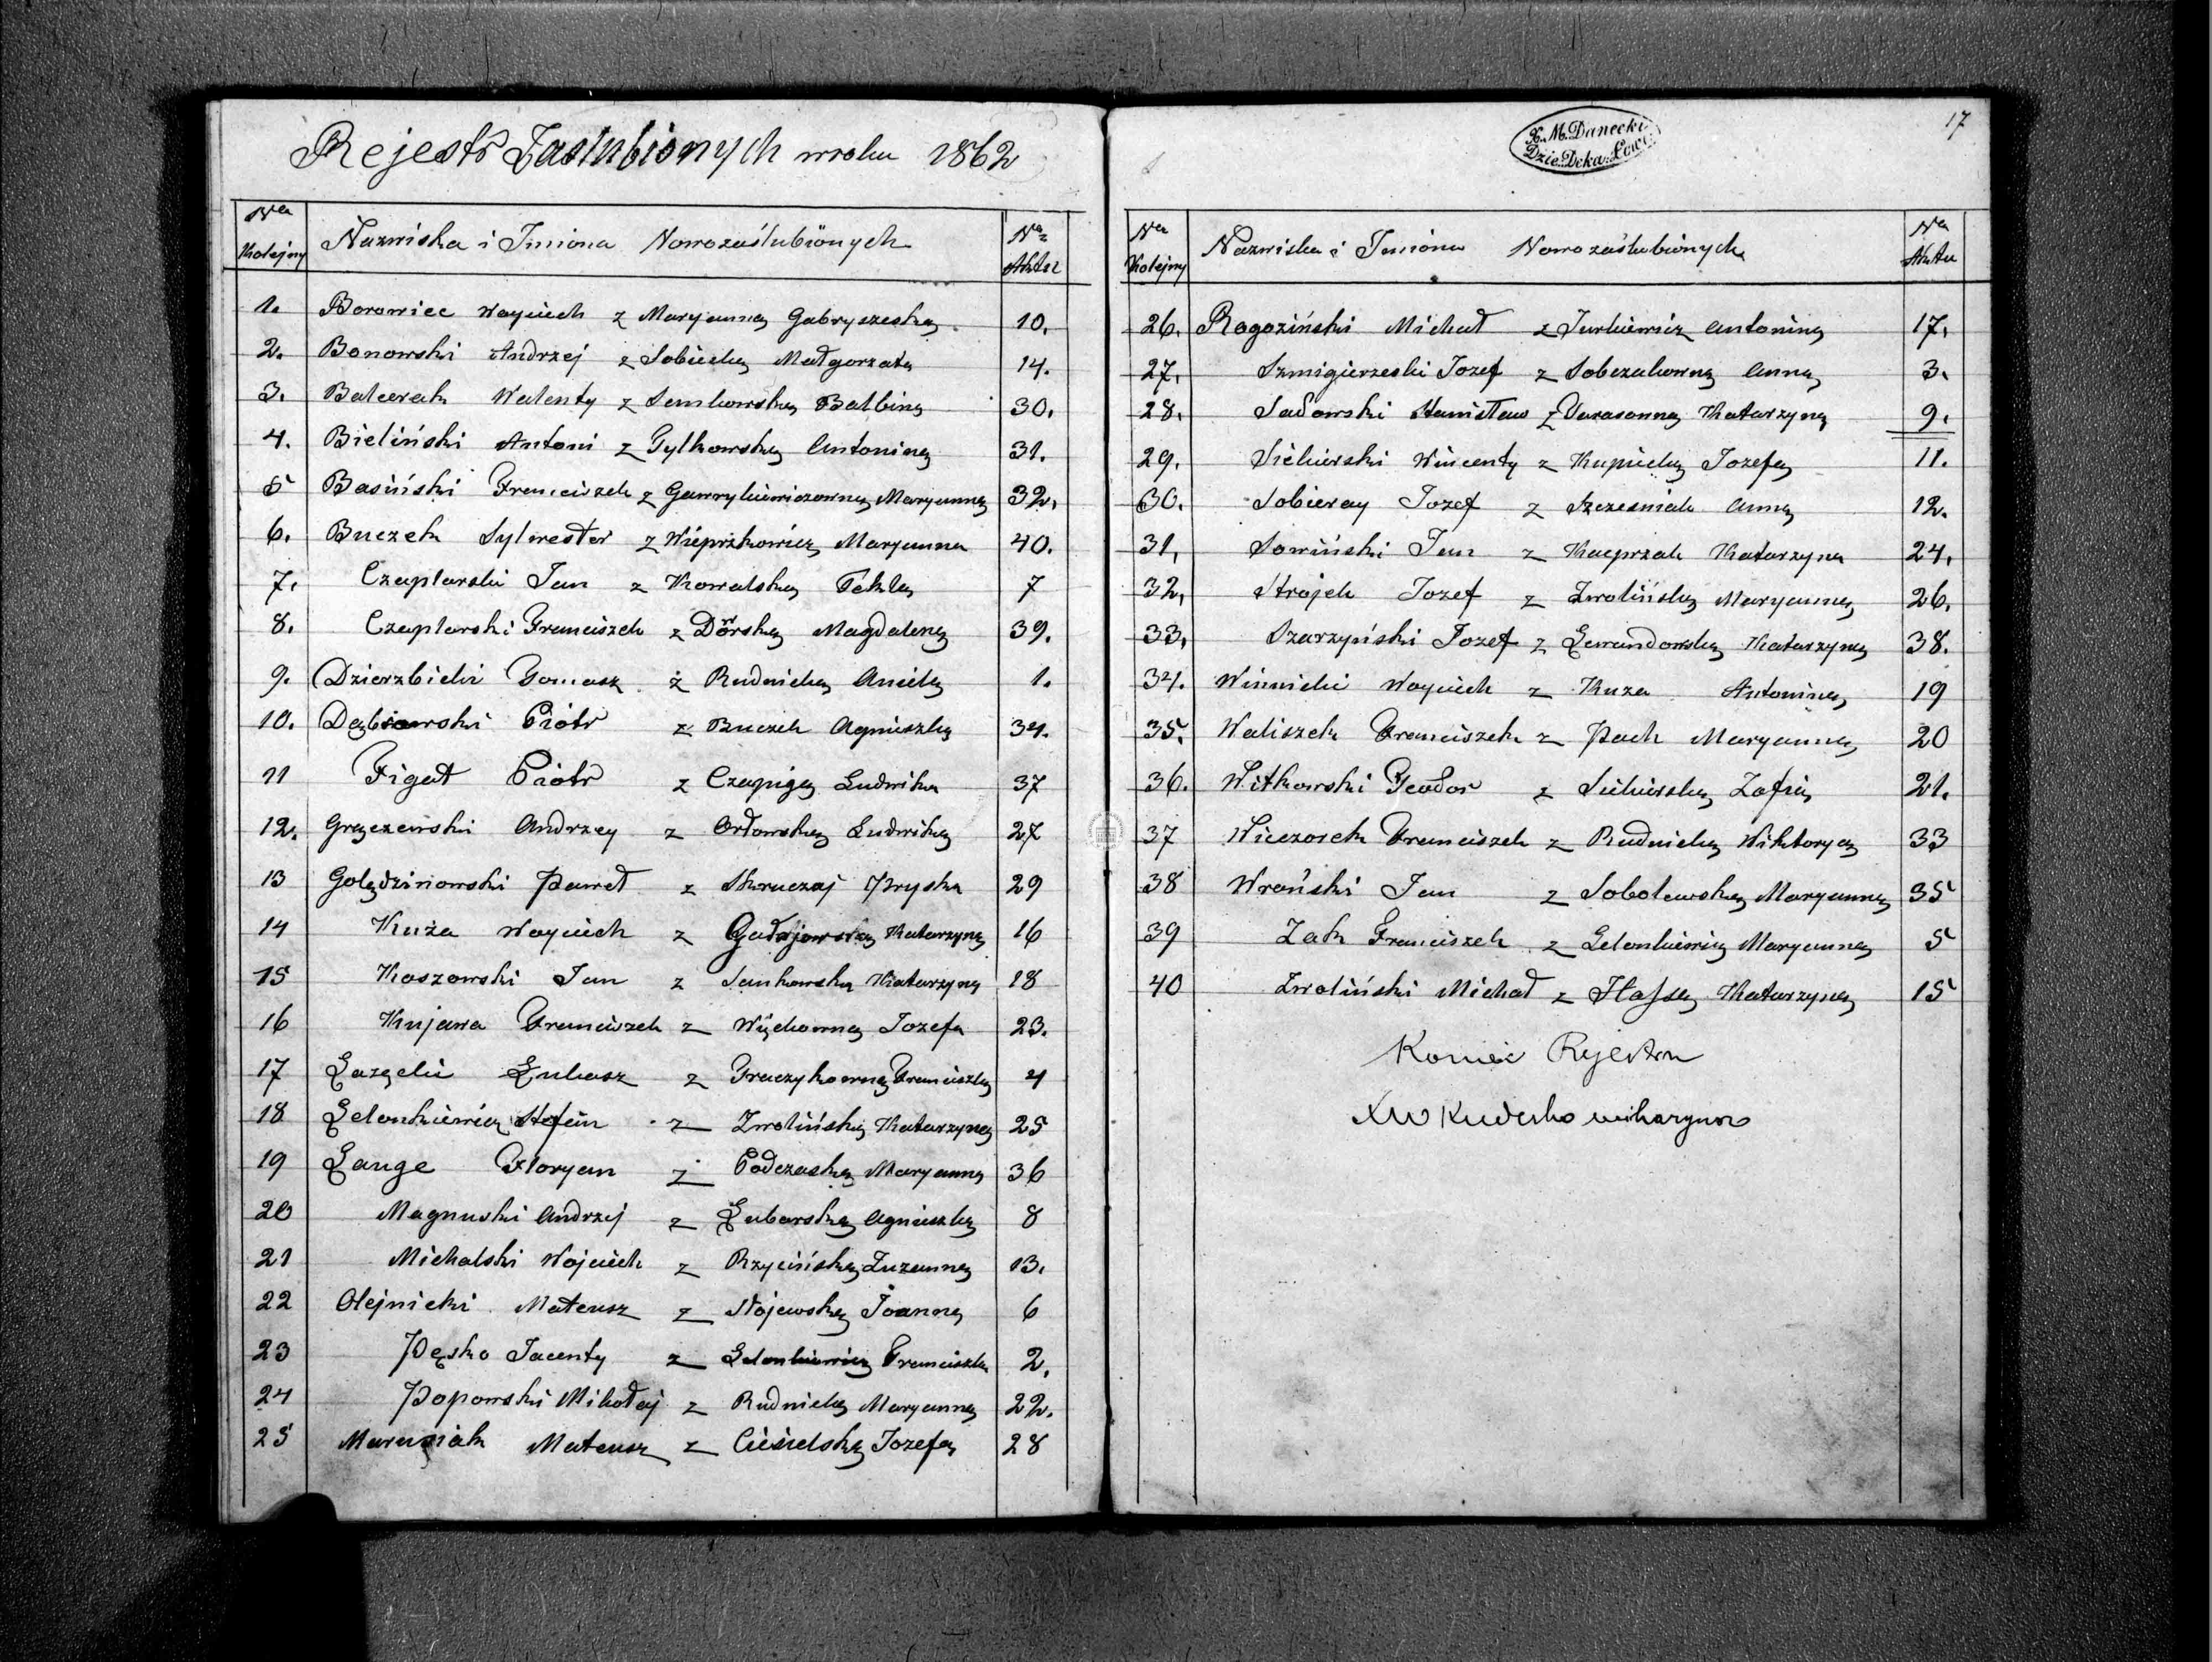 Rejestr Zaslubionych w roku 1862
Nr Kolejny Nazwiska i Imiona Nowozaślubionych Nr Aktu
1. Borowiec Woyciech z Maryanną Gabryszeską 10.
2. Bonowski Andrzej z Sobiecką Małgorzatą 14.
3. Balcerak Walenty z Semkowską Balbiną 30.
4. Bieliński Antoni z Gylkowską Antoniną 31.
5 Basiński Franciszek z Gawrykiewiczowną Maryanną 32.
6. Buczek Sylwester z Wieprzkowicz Maryanna 40.
7. Czaplarski Jan z Kowalską Teklą 7
8. Czaplarski Franciszek z Dworską Magdaleną 39.
9. Dzierzbicki Tomasz z Rudnicką Anielą 1.
10. Dąbrowski Piotr z Buczek Agnieszką 34.
11 Figat Piotr z Czapigą Ludwika 37
12. Grączewski Andrzey z Orłowską Ludwiką 27
13 Golędzinowski Paweł z Skruczaj Pryska 29
14 Kuża Woyciech z Katarzyną 16
15 Koszowski Jan z Jankowska Katarzyną 18
16 Kujawa Franciszek z Wychowną Jozefa 23.
17 Łazęcki Łukasz z Fraczykowną Franciszką 4
18 Lelonkiewicz Stefan z Zwolińską Katarzyną 25
19 Lange Floryan z Podczaską Maryanną 36
20 Magnuski Andrzej z Lubarską Agnieszką 8
21 Michalski Wojciech z Rzycińską Zuzanną 13.
22 Olejnicki Mateusz z Stojewską Joanną 6
23 Pęsko Jacenty z Lelonkiewicz Franciszka 2.
24 Popowski Mikołaj z Rudnicką Maryanną 22.
25 Maruszak Mateusz z Ciesielską Jozefą 28
17
X. M. Danecki
Dzie. Deka. Łowi.
Nr Kolejny Nazwiska i Imiona Nowozaślubionych Nr Aktu
26. Rogoziński Michał z Jurkiewicz Antoniną 17.
27. Szmigierzeski Jozef z Sobczakowną Anną 3.
28. Sadowski Stanisław z Tarasonną Katarzyną 9.
29. Siekierski Wincenty z Kupiecką Jozefą 11.
30. Sobieray Jozef z Szczesniak Anną 12.
31. Sowiński Jan z Kacprzak Katarzyna 24.
32. Strojek Jozef z Zwolińską Maryanną 26.
33. Szarzyński Jozef z Lewandowską Katarzyną 38.
34. Winnicki Woyciech z Kuza Antoniną 19
35. Waliszek Franciszek z Pach Maryanną 20
36. Witkowski Teodor z Siekierską Zofią 21.
37 Wieczorek Franciszek z Rudnicką Wiktoryą 33
38 Wroński Jan z Sobolewską Maryanną 35
39 Zak Franciszek z Lelonkiewicz Maryanną 5
40 Zwoliński Michał z Hassą Katarzyną 15
Koniec Rejestru